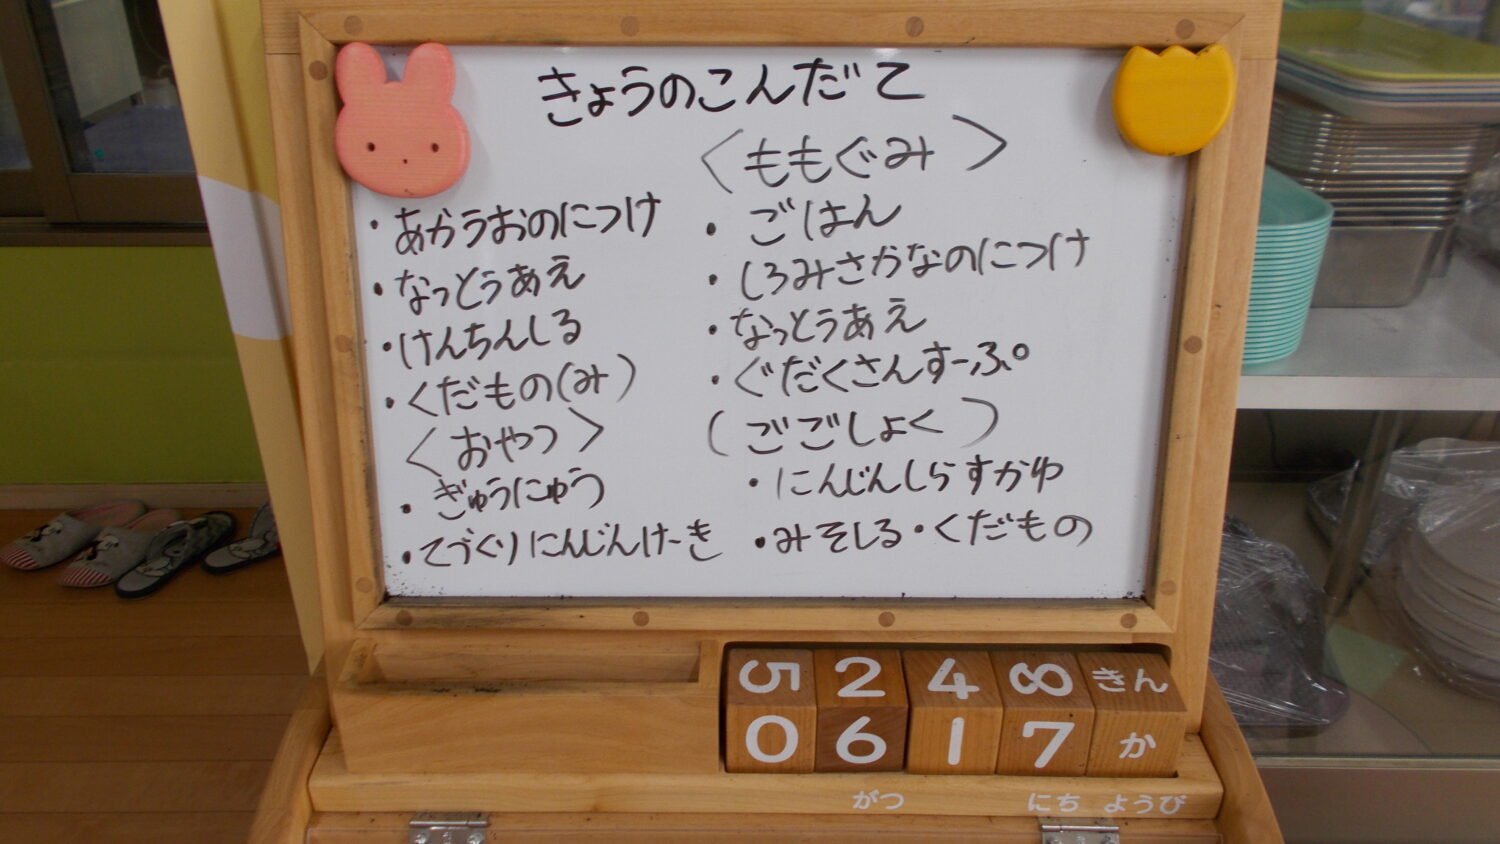 きょうのこんだて
・あかうおのにつけ
・なっとうあえ
・けんちんしる
・くだもの(み)
〈おやつ〉
・ぎゅうにゅう
・てづくりにんじんけーき
〈ももぐみ〉
・ごはん
・しろみさかなのにつけ
・なっとうあえ
・ぐだくさんすーぷ
(ごごしょく)
・にんじんしらすかゆ
・みそしる・くだもの
5 2 4 8 きん
0 6 1 7 か
がつ にち ようび